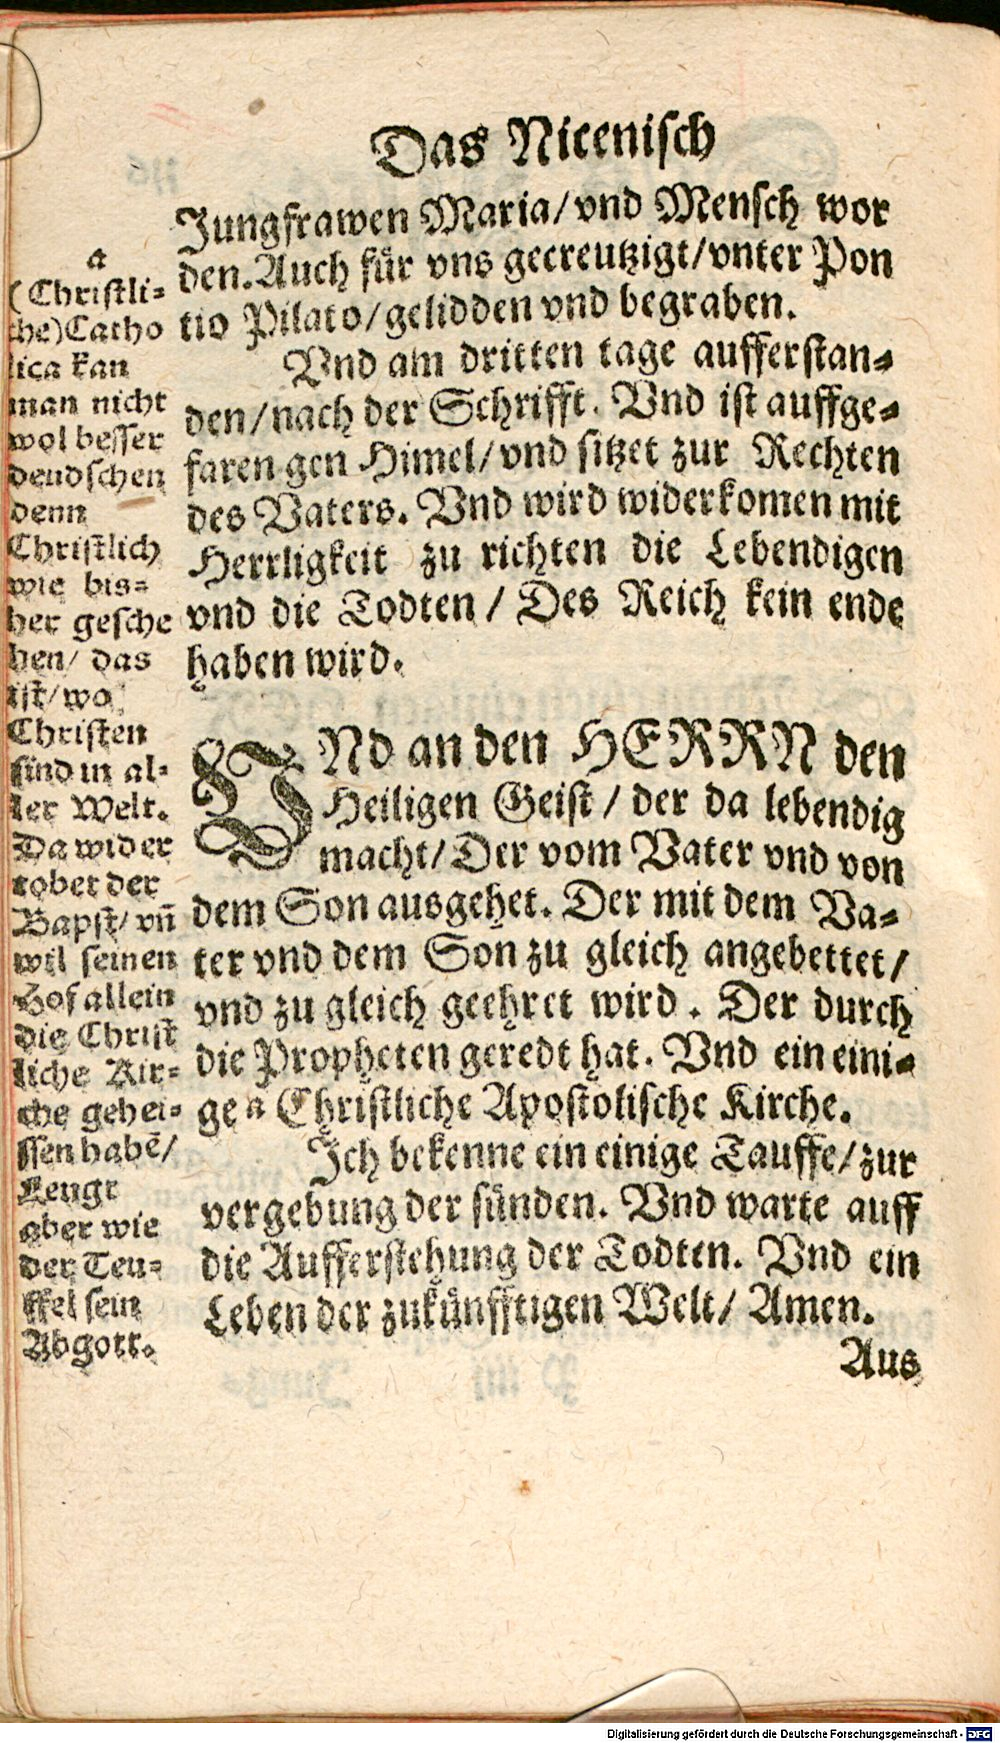 Das Nicenisch
Jungfrawen Maria/vnd Mensch wor
den. Auch für vns gecreutzigt/vnter Pon
tio Pilato/gelidden vnd begraben.
Vnd am dritten tage aufferstan-
den/nach der Schrifft. Vnd ist auffge-
faren gen Himel/vnd sitzet zur Rechten
des Vaters. Vnd wird widerkomen mit
Herrligkeit zu richten die Lebendigen
vnd die Todten / Des Reich kein ende
haben wird.
VNd an den HERRN den
Heiligen Geist / der da lebendig
macht/Der vom Vater vnd von
dem Son ausgehet. Der mit dem Va-
ter vnd dem Son zu gleich angebettet/
vnd zu gleich geehret wird. Der durch
die Propheten geredt hat. Vnd ein eini-
ge a Christliche Apostolische Kirche.
Ich bekenne ein einige Tauffe/zur
vergebung der sünden. Vnd warte auff
die Aufferstehung der Todten. Vnd ein
Leben der zukünfftigen Welt/ Amen.
Aus
a
(Christli-
che)Catho
lica kan
man nicht
wol besser
deudschen
denn
Christlich
wie bis-
her gesche
hen/ das
ist/wo
Christen
sind in al-
ler Welt.
Da wider
tobet der
Bapst/ vn̄
wil seinen
Hof allein
die Christ
liche Kir-
che gehei-
ssen habē/
Leugt
aber wie
der Teu-
ffel sein
Abgott.
Digitalisierung gefördert durch die Deutsche Forschungsgemeinschaft - DFG